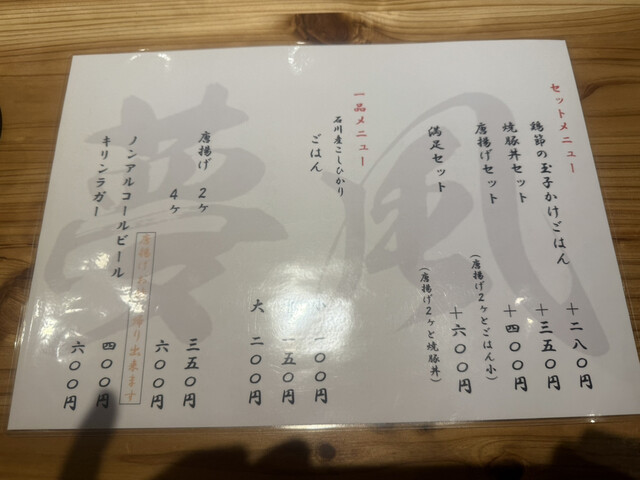 風夢
セットメニュー
鶏節の玉子かけごはん +二八〇円
焼豚丼セット +三五〇円
唐揚げセット +四〇〇円
(唐揚げ2ケとごはん小)
満足セット +六〇〇円
(唐揚げ2ケと焼豚丼)
一品メニュー
石川産こしひかり
ごはん 小 一〇〇円
一五〇円
大 二〇〇円
唐揚げ 2ケ 三五〇円
4ケ 六〇〇円
唐揚げお持ち帰り出来ます
ノンアルコールビール 四〇〇円
キリンラガー 六〇〇円